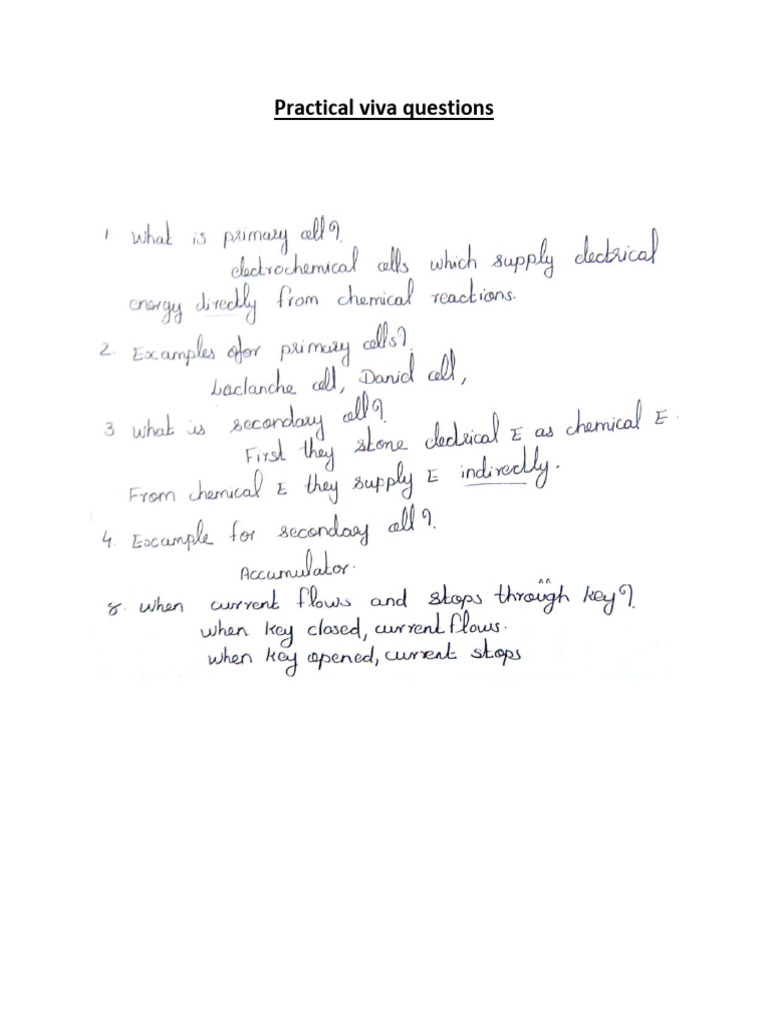 Practical viva questions
1 What is primary cell?
electrochemical cells which supply electrical
energy directly from chemical reactions.
2. Examples for primary cells?
Laclanche cell, Daniel cell,
3 What is secondary cell?
First they store electrical E as chemical E.
From chemical E they supply E indirectly.
4. Example for secondary cell?
Accumulator.
8. When current flows and stops through key?
when key closed, current flows.
when key opened, current stops